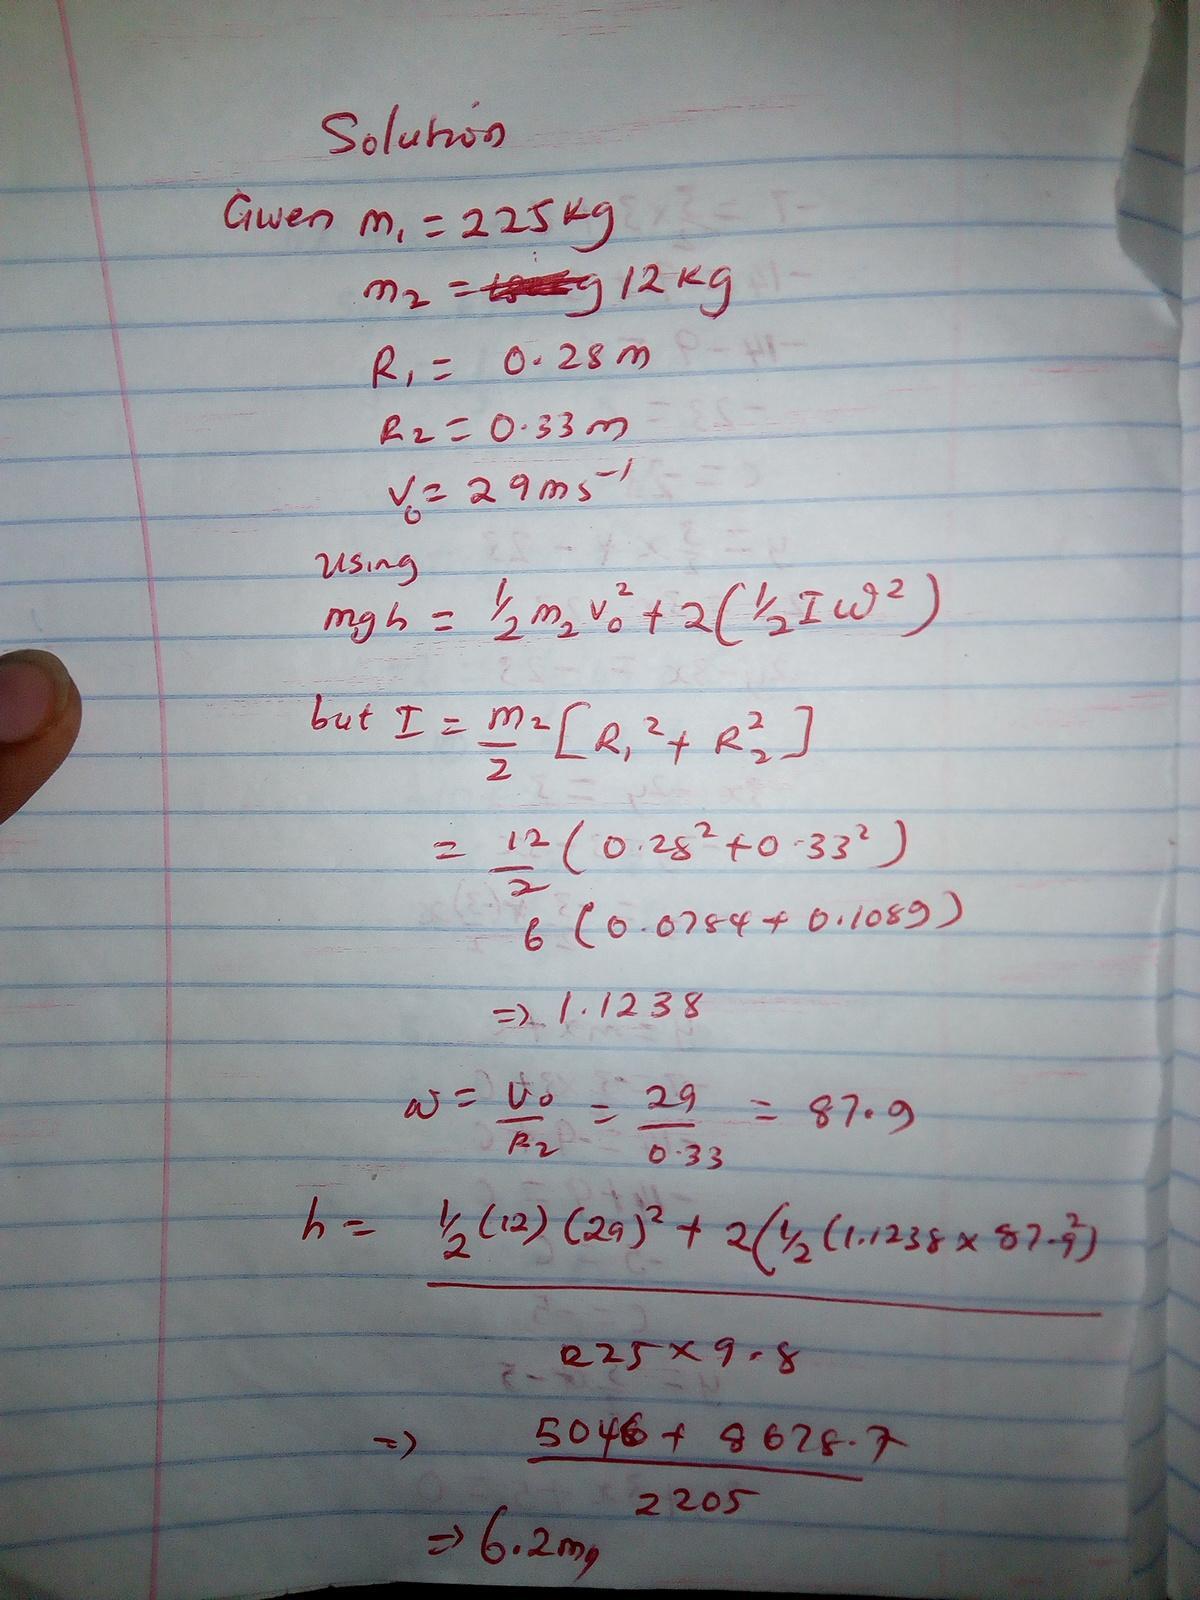 Solution
Given m₁ = 225 kg
m₂ = g 12 kg
R₁ = 0.28 m
R₂ = 0.33 m
V₀ = 29 ms⁻¹
using
mgh = ½ m₂ V₀² + 2(½ I ω²)
but I = m₂/2 [R₁² + R₂²]
= 12/2 (0.28² + 0.33²)
6 (0.0784 + 0.1089)
=> 1.1238
ω = V₀/R₂ = 29/0.33 = 87.9
h = ½ (12) (29)² + 2(½ (1.1238 x 87.9²)
225 x 9.8
=> 5046 + 8678.7
2205
=> 6.2m